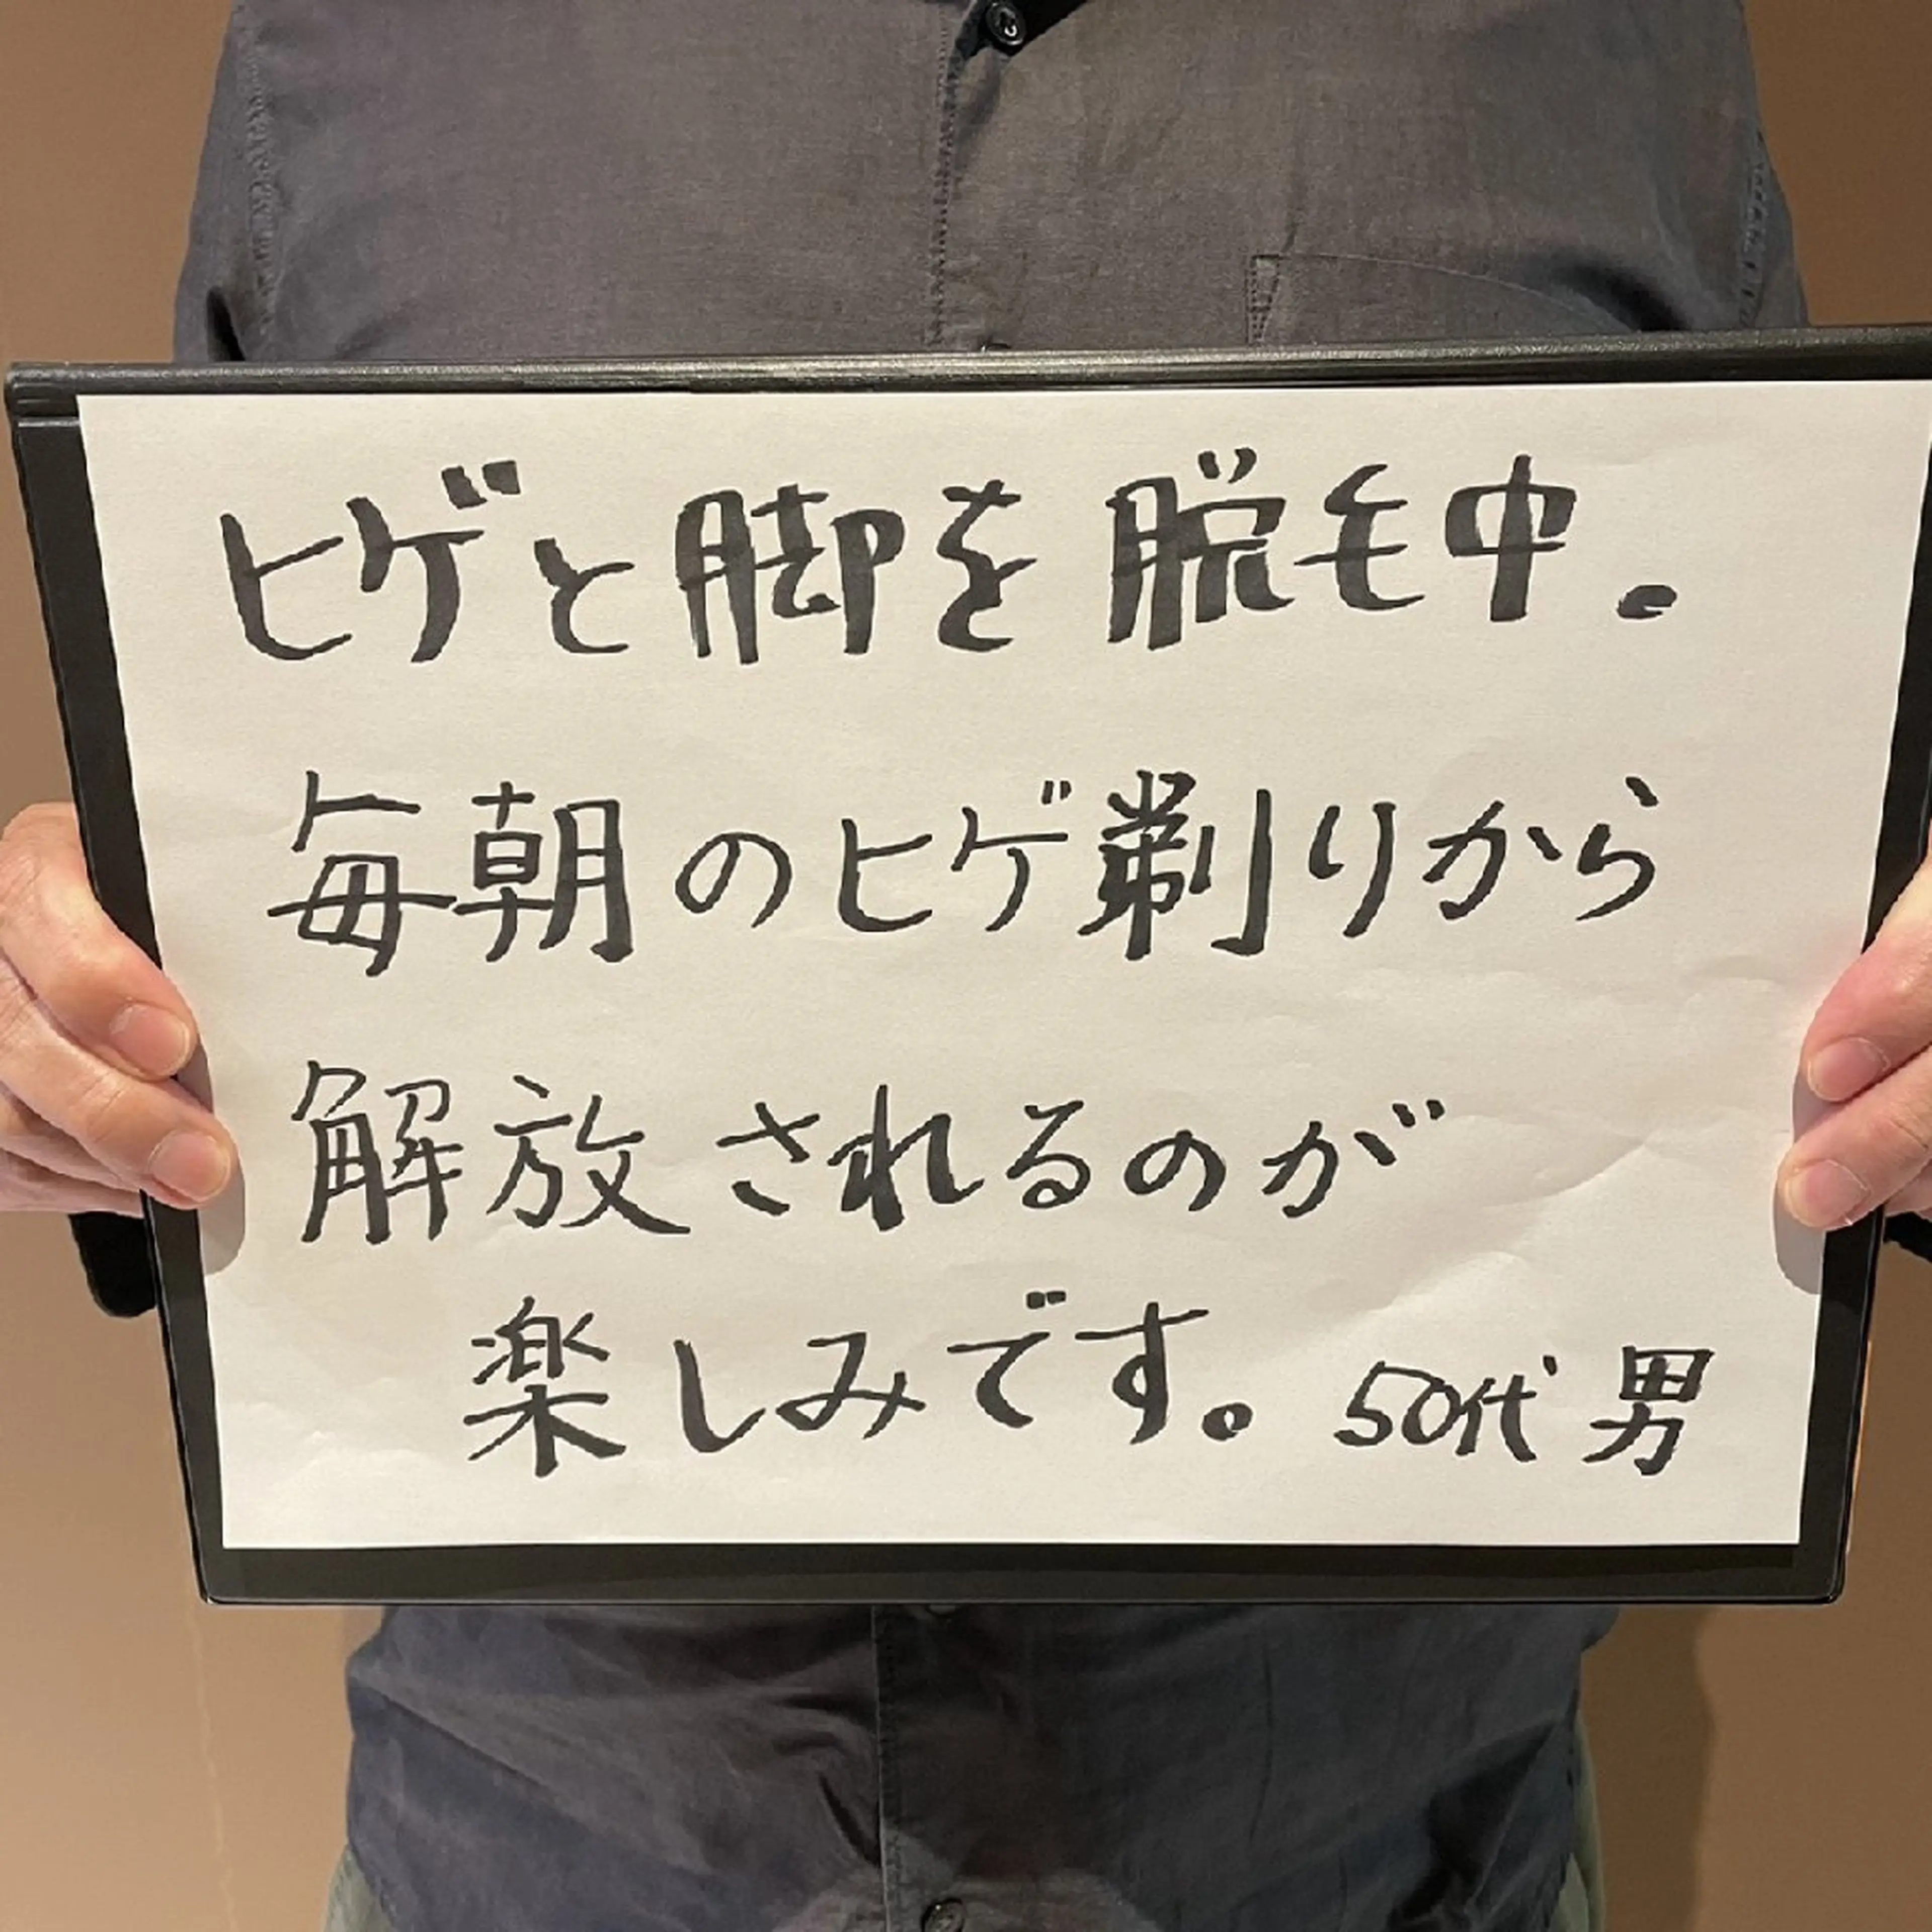 ヒゲと脚を脱毛中。
毎朝のヒゲ剃りから
解放されるのが
楽しみです。50代 男